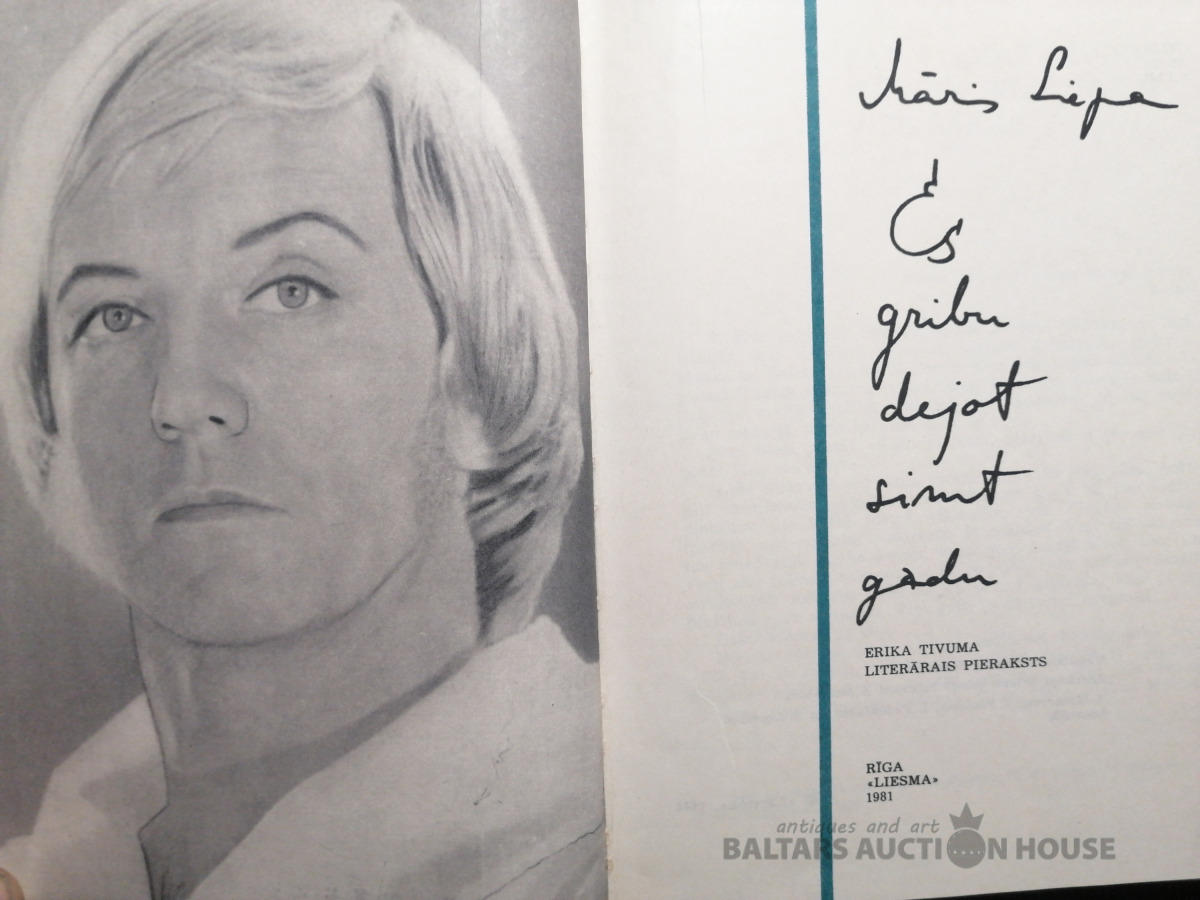 Māris Liepa
Es
gribu
dejot
simt
gadu
ERIKA TIVUMA
LITERĀRAIS PIERAKSTS
RĪGA
«LIESMA»
1981
antiques and art
BALTARS AUCTION HOUSE